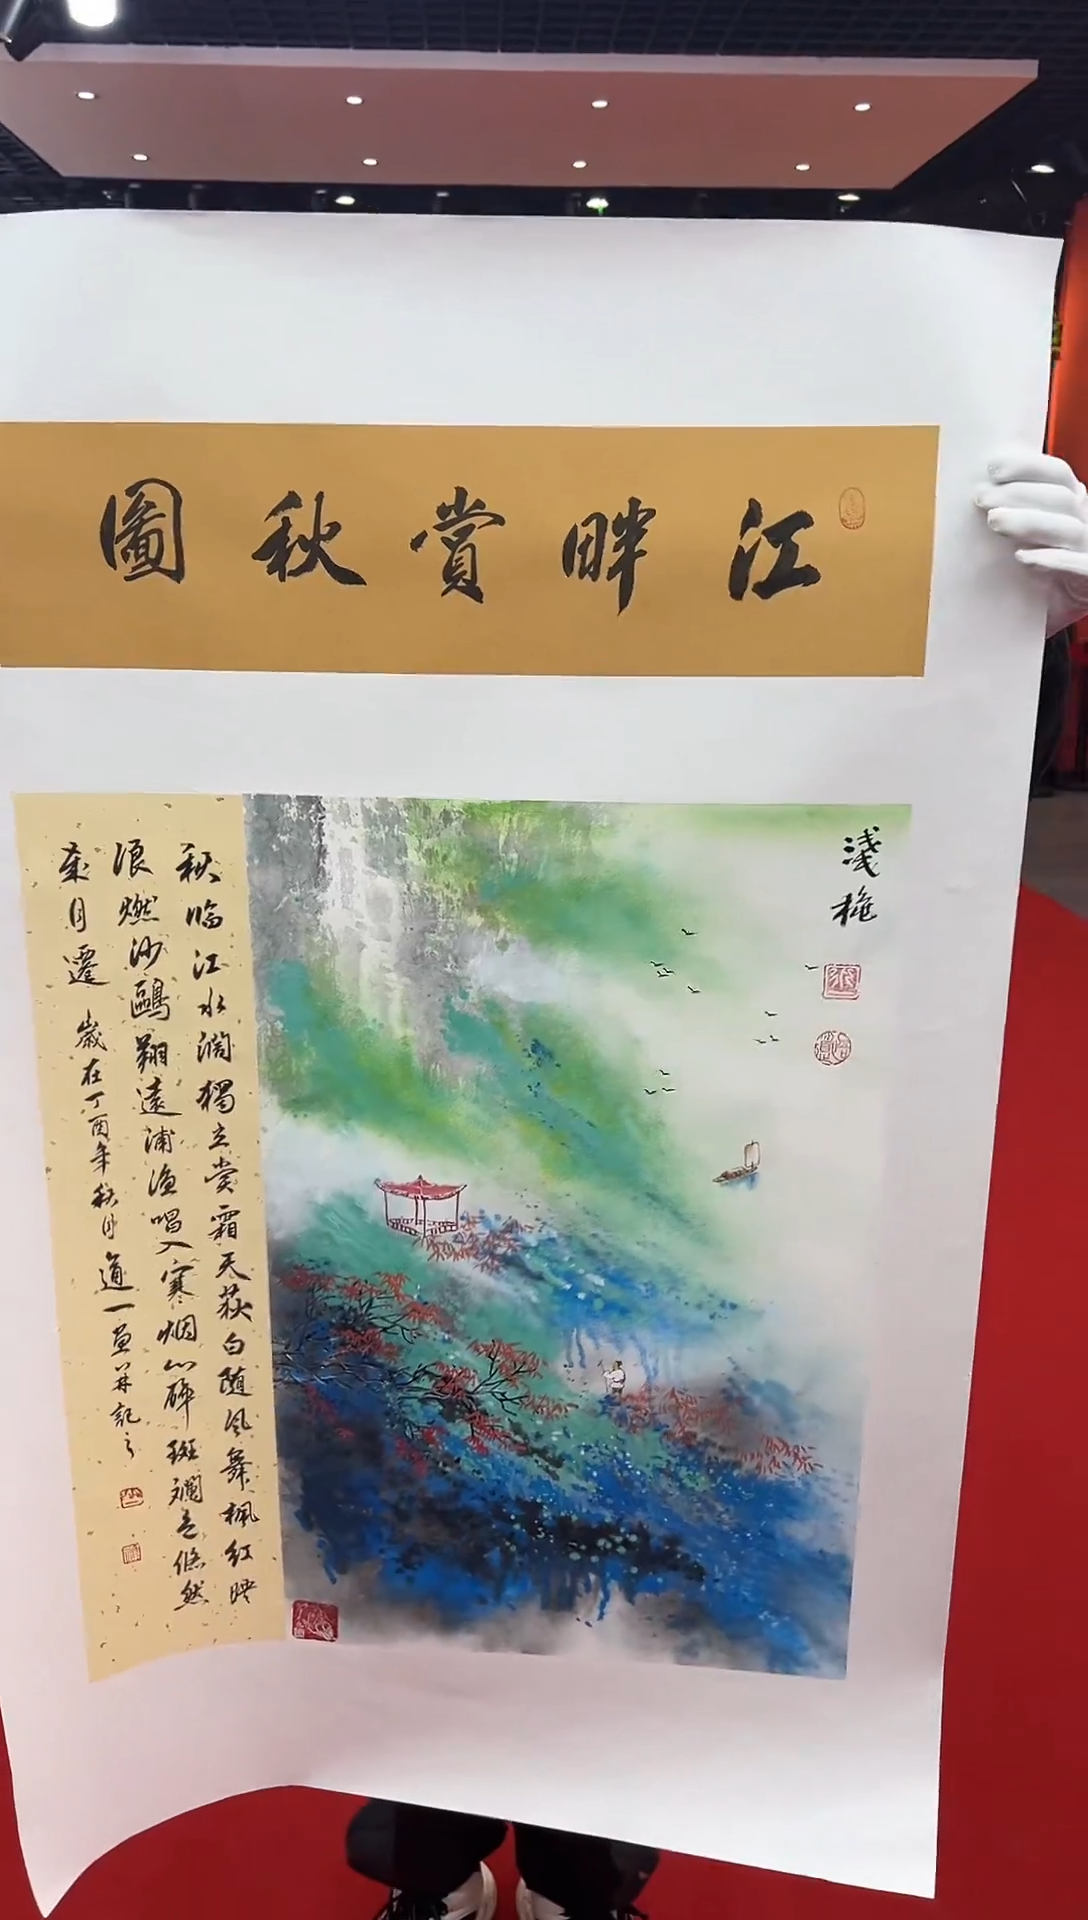 江畔賞秋圖
淺穐
秋临江水濶獨立賞霜天荻白随风舞楓红映
浪燃沙鷗翔遠浦渔唱入寒烟心醉斑斕色悠然
乘月還 歲在丁酉年秋月道一畫并記之